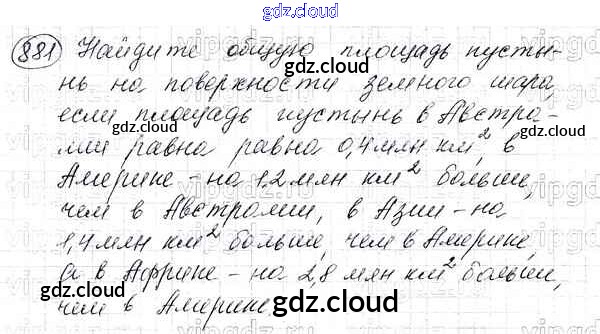 gdz.cloud
881 Найдите общую площадь пусты-
нь на поверхности земного шара,
gdz.cloud
если площадь пустынь в Австра-
gdz.cloud gdz.cloud
лии равна равна 0,4 млн км², в
Америке - на 1,2 млн км² больше,
чем в Австралии, в Азии - на
1,4 млн км² больше, чем в Америке,
gdz.cloud gdz.cloud
а в Африке - на 2,8 млн км² больше,
чем в Америке
gdz.cloud